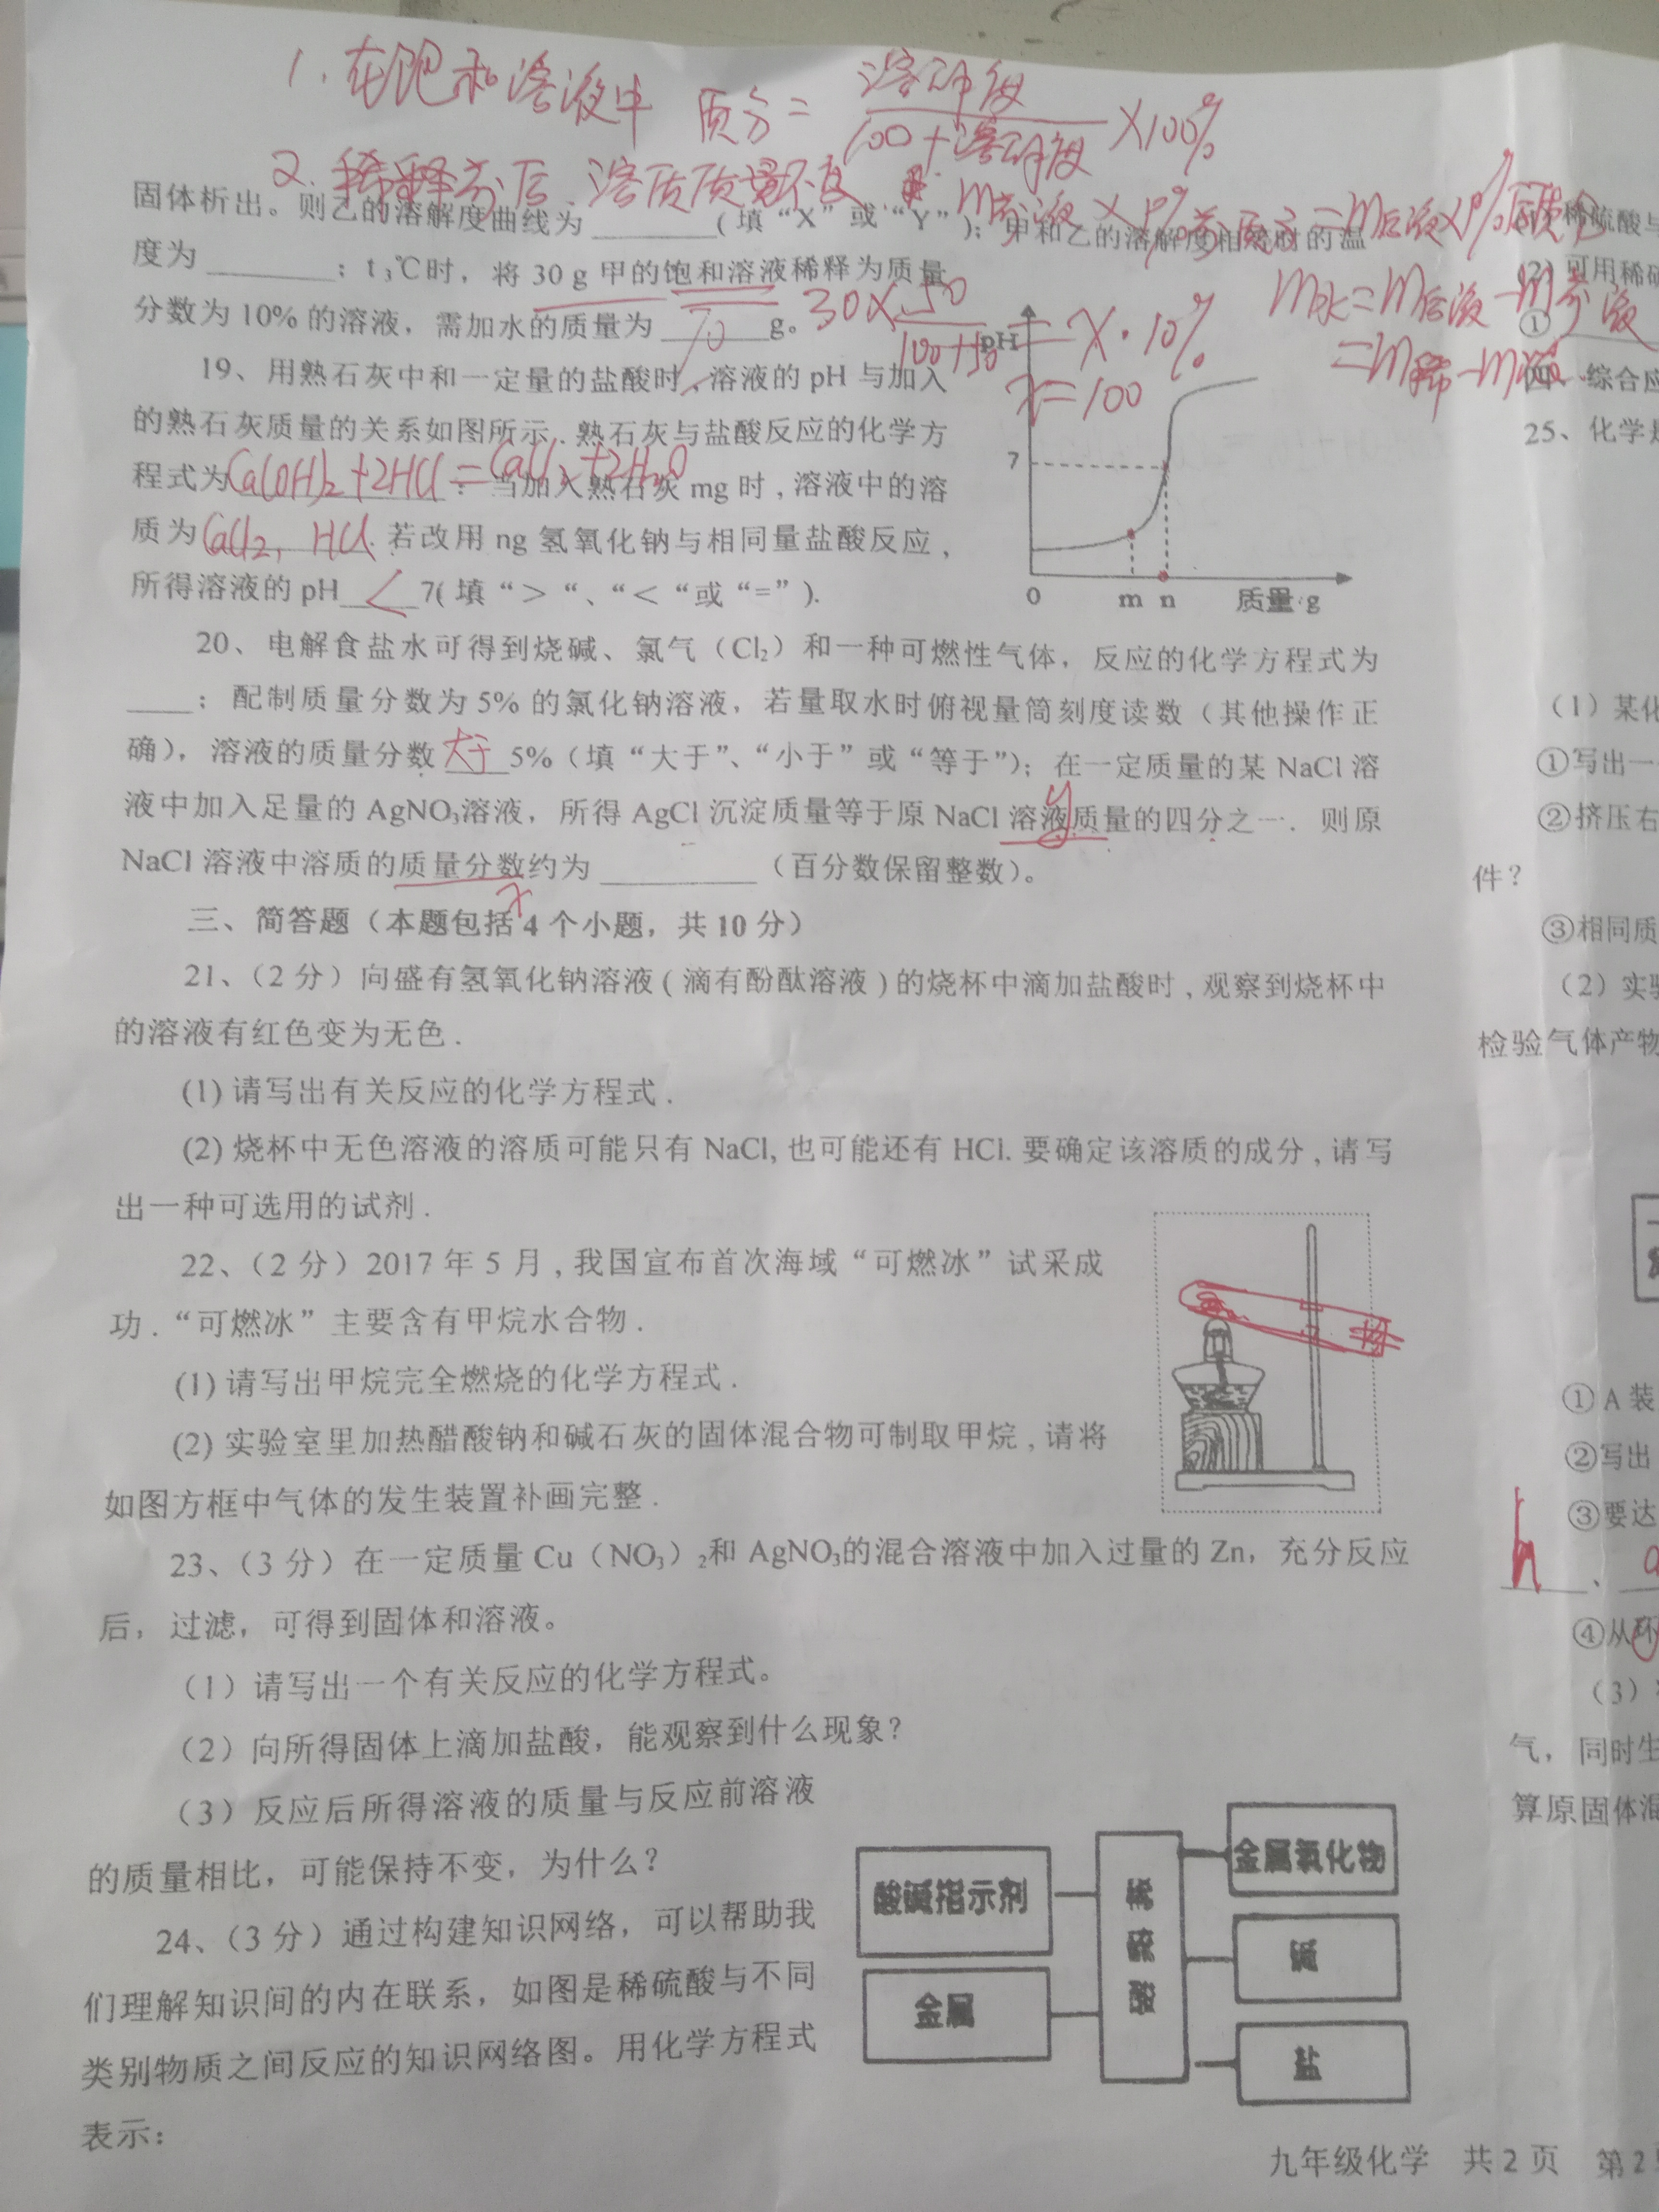 1. 在饱和溶液中 质分 = 溶解度/(100+溶解度) ×100%
2. 稀释前后溶质质量不变 m前液×p%前质分=m后液×p%后质分
固体析出。则乙的溶解度曲线为________(填“X”或“Y”);甲和乙的溶解度相等时的温
度为________;t₃℃时,将30 g 甲的饱和溶液稀释为质量
m水=m后液-m前液
分数为10%的溶液,需加水的质量为 70 g。 30×50/(100+50) = x·10%
=m稀-m浓
x=100
19、用熟石灰中和一定量的盐酸时,溶液的 pH 与加入
的熟石灰质量的关系如图所示.熟石灰与盐酸反应的化学方
程式为Ca(OH)₂+2HCl=CaCl₂+2H₂O;当加入熟石灰 mg 时,溶液中的溶
质为CaCl₂,HCl.若改用 ng 氢氧化钠与相同量盐酸反应,
所得溶液的 pH < 7(填“>“、“<“或“=”).
pH
7
0 m n 质量/g
20、电解食盐水可得到烧碱、氯气(Cl₂)和一种可燃性气体,反应的化学方程式为
____;配制质量分数为5%的氯化钠溶液,若量取水时俯视量筒刻度读数(其他操作正
确),溶液的质量分数 大于 5%(填“大于”、“小于”或“等于”);在一定质量的某 NaCl 溶
液中加入足量的 AgNO₃溶液,所得 AgCl 沉淀质量等于原 NaCl 溶液质量的四分之一.则原
y
NaCl 溶液中溶质的质量分数约为 ________(百分数保留整数)。
x
三、简答题(本题包括 4 个小题,共 10 分)
21、(2 分)向盛有氢氧化钠溶液(滴有酚酞溶液)的烧杯中滴加盐酸时,观察到烧杯中
的溶液有红色变为无色.
(1)请写出有关反应的化学方程式.
(2)烧杯中无色溶液的溶质可能只有 NaCl,也可能还有 HCl.要确定该溶质的成分,请写
出一种可选用的试剂.
22、(2 分)2017 年 5 月,我国宣布首次海域“可燃冰”试采成
功.“可燃冰”主要含有甲烷水合物.
(1)请写出甲烷完全燃烧的化学方程式.
(2)实验室里加热醋酸钠和碱石灰的固体混合物可制取甲烷,请将
如图方框中气体的发生装置补画完整.
23、(3 分)在一定质量 Cu(NO₃)₂和 AgNO₃的混合溶液中加入过量的 Zn,充分反应
后,过滤,可得到固体和溶液。
(1)请写出一个有关反应的化学方程式。
(2)向所得固体上滴加盐酸,能观察到什么现象?
(3)反应后所得溶液的质量与反应前溶液
的质量相比,可能保持不变,为什么?
24、(3 分)通过构建知识网络,可以帮助我
们理解知识间的内在联系,如图是稀硫酸与不同
类别物质之间反应的知识网络图。用化学方程式
表示:
酸碱指示剂
金属
稀硫酸
金属氧化物
碱
盐
九年级化学 共 2 页 第 2
稀硫酸与
(2)可用稀
①
四、综合应
25、化学是
(1)某化
①写出一
②挤压右
件?
③相同质
(2)实验
检验气体产物
①A 装
②写出
③要达
h 、
④从环
(3)
气,同时生
算原固体混